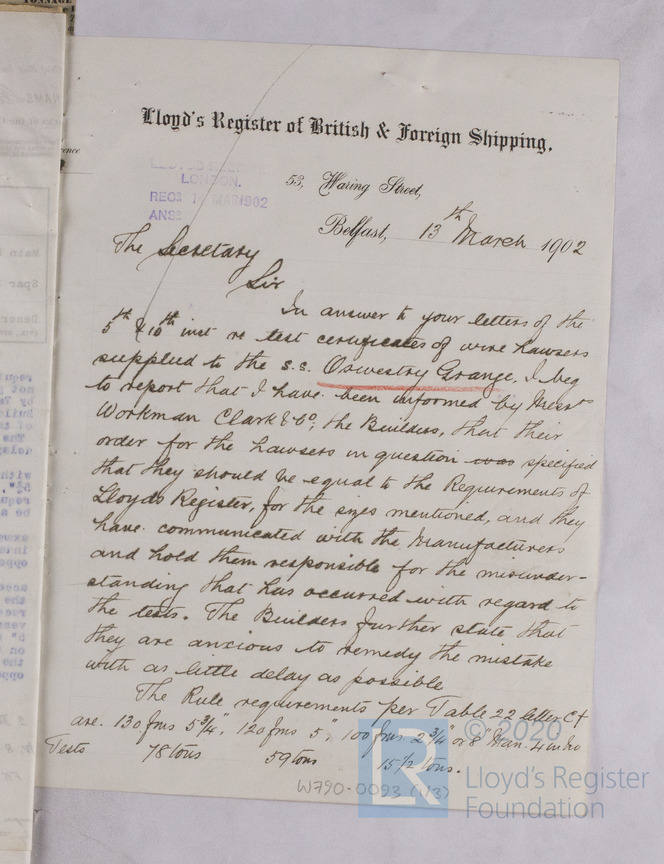 Lloyd's Register of British & Foreign Shipping.
53, Waring Street,
LONDON.
REC MAR 1902
ANS
Belfast, 13th March 1902
The Secretary
Sir
In answer to your letters of the
5th & 10th inst re test certificates of wire hawsers
supplied to the s.s. Oswestry Grange, I beg
to report that I have been informed by Messrs
Workman Clark & Co, the Builders, that their
order for the hawsers in question was specified
that they should be equal to the Requirements of
Lloyds Register, for the sizes mentioned, and they
have communicated with the Manufacturers
and hold them responsible for the misunder-
standing that has occurred with regard to
the tests. The Builders further state that
they are anxious to remedy the mistake
with as little delay as possible
The Rule requirements per Table 22 letter C+
are. 130 fms 5 3/4", 120 fms 5", 100 fms 2 3/4" or 8" Man.
Tests 78 tons 59 tons 15 1/2 tons.
W790-0093 (1/3)
© 2020
LR
Lloyd's Register
Foundation